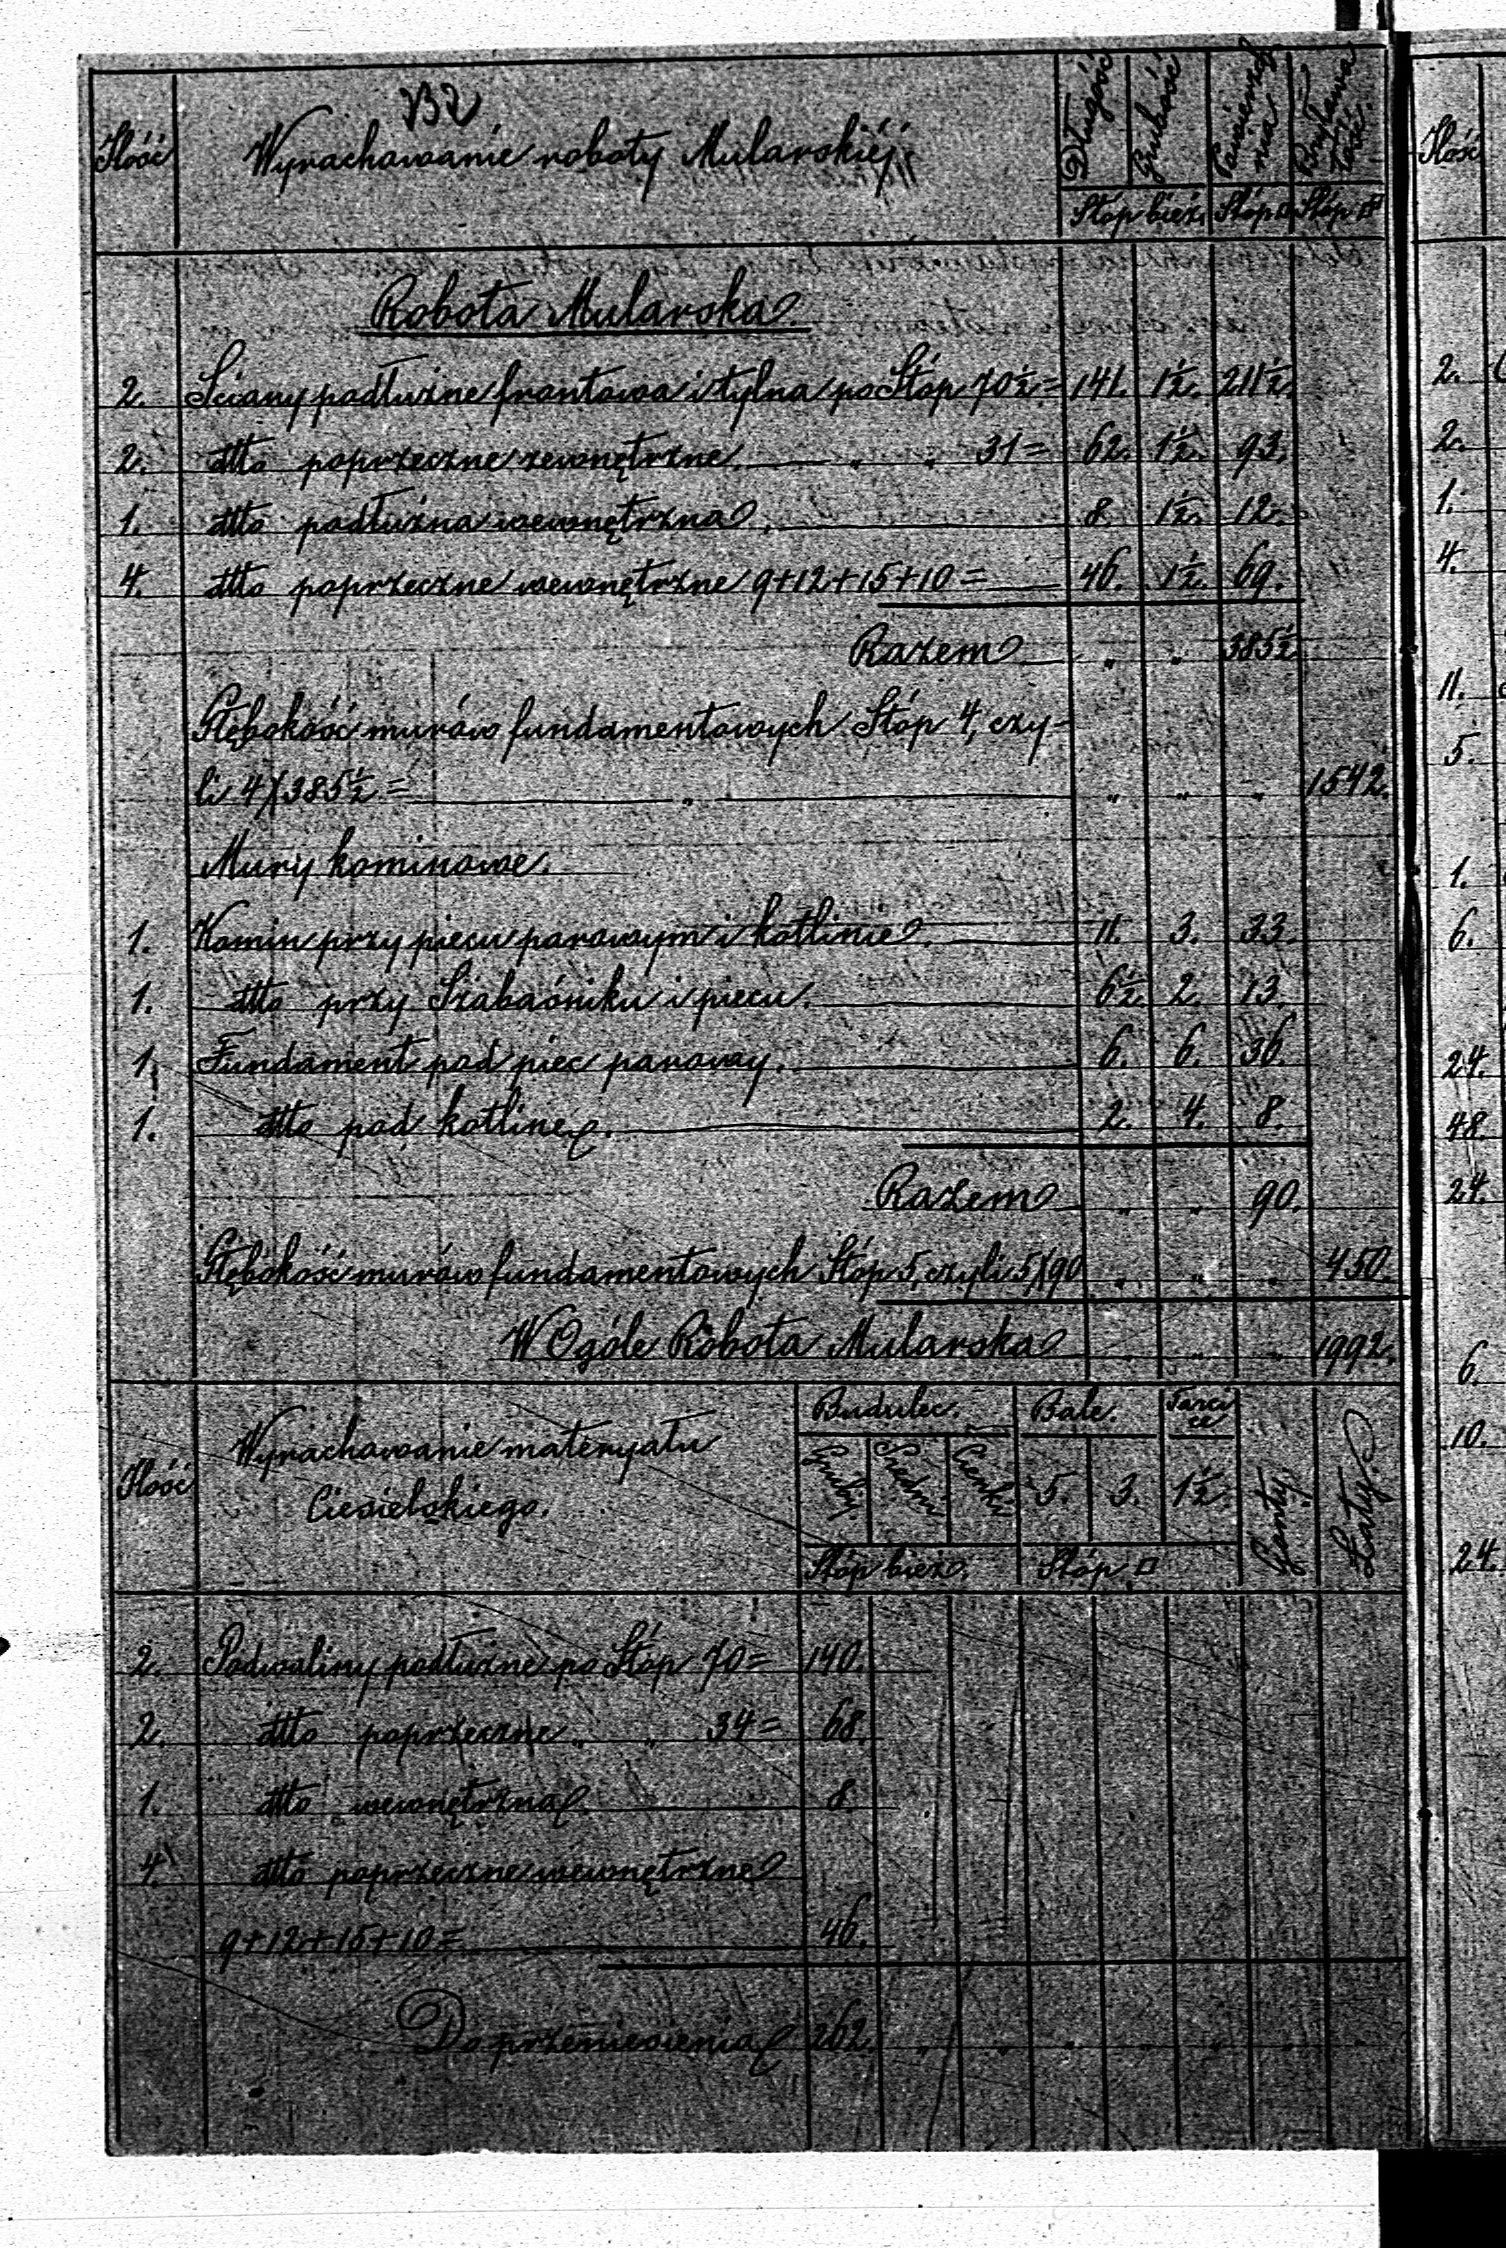 132
Ilość Wyrachowanie roboty Mularskiéj. Długość Grubość Powierzchnia Bryłowatość.
Stóp bież. Stóp □ Stóp
Robota Mularska
2. Sciany podłużne frontowa i tylna po Stóp 70½ = 141. 1½. 211½.
2. dtto poprzeczne zewnętrzne „ „ 31 = 62. 1½. 93.
1. dtto podłużna wewnętrzna. 8. 1½. 12.
4. dtto poprzeczne wewnętrzne 9+12+15+10 = 46. 1½. 69.
Razem „ „ 385½
Głębokość murów fundamentowych Stóp 4, czy-
li 4×385½ = „ „ „ „ 1542.
Mury kominowe.
1. Komin przy piecu parowym i kotlinie. 11. 3. 33.
1. dtto przy Szabaśniku i piecu. 6½. 2. 13.
1. Fundament pod piec parowy. 6. 6. 36.
1. dtto pod kotlinę. 2. 4. 8.
Razem „ „ 90.
Głębokość murów fundamentowych Stóp 5, czyli 5×90 „ „ „ 450.
W Ogóle Robota Mularska „ „ „ 1992.
Ilość Wyrachowanie materyału Budulec. Bale. Tarcice
Ciesielskiego. Gruby Średni Cienki 5. 3. 1½. Gonty. Łaty.
Stóp bież. Stóp □
2. Podwaliny podłużne po Stóp 70 = 140.
2. dtto poprzeczne „ „ 34 = 68.
1. dtto wewnętrzna 8.
4. dtto poprzeczne wewnętrzne
9+12+15+10 = 46.
Do przeniesienia 262. „ „ „ „ „ „ „
Ilość
2.
2.
1.
4.
11.
5.
1.
6.
24.
48.
24.
6.
10.
24.